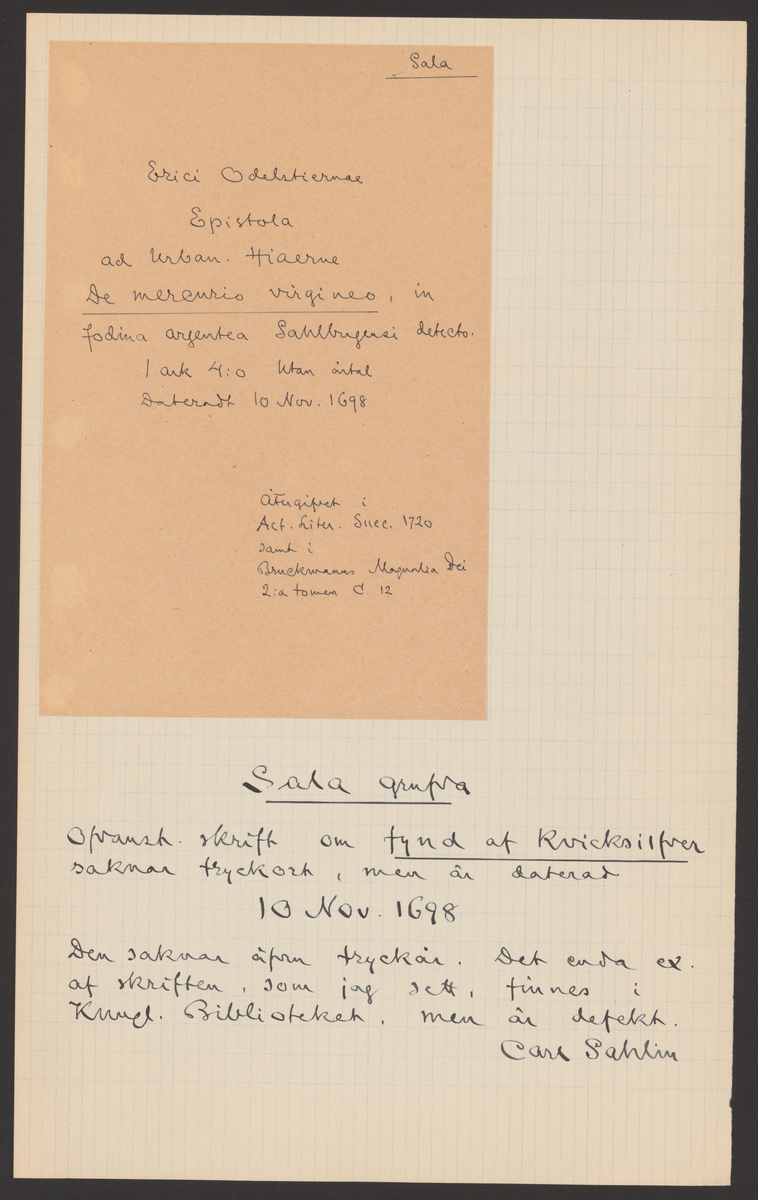 Sala
Erici Odelstiernae
Epistola
ad Urban. Hiaerne
De mercurio virgineo, in
fodina argentea Sahlbergensi detecto.
1 ark 4:o Utan årtal
Dateradt 10 Nov. 1698
Återgifvet i
Act. Liter. Suec. 1720
samt i
Bruckmanns Magnalia Dei
2:a tomen C 12
Sala grufva
Ofvanst. skrift om fynd af Kvicksilfver
saknar tryckort, men är daterad
10 Nov. 1698
Den saknar äfven tryckår. Det enda ex.
af skriften, som jag sett, finnes i
Kungl. Biblioteket, men är defekt.
Carl Sahlin